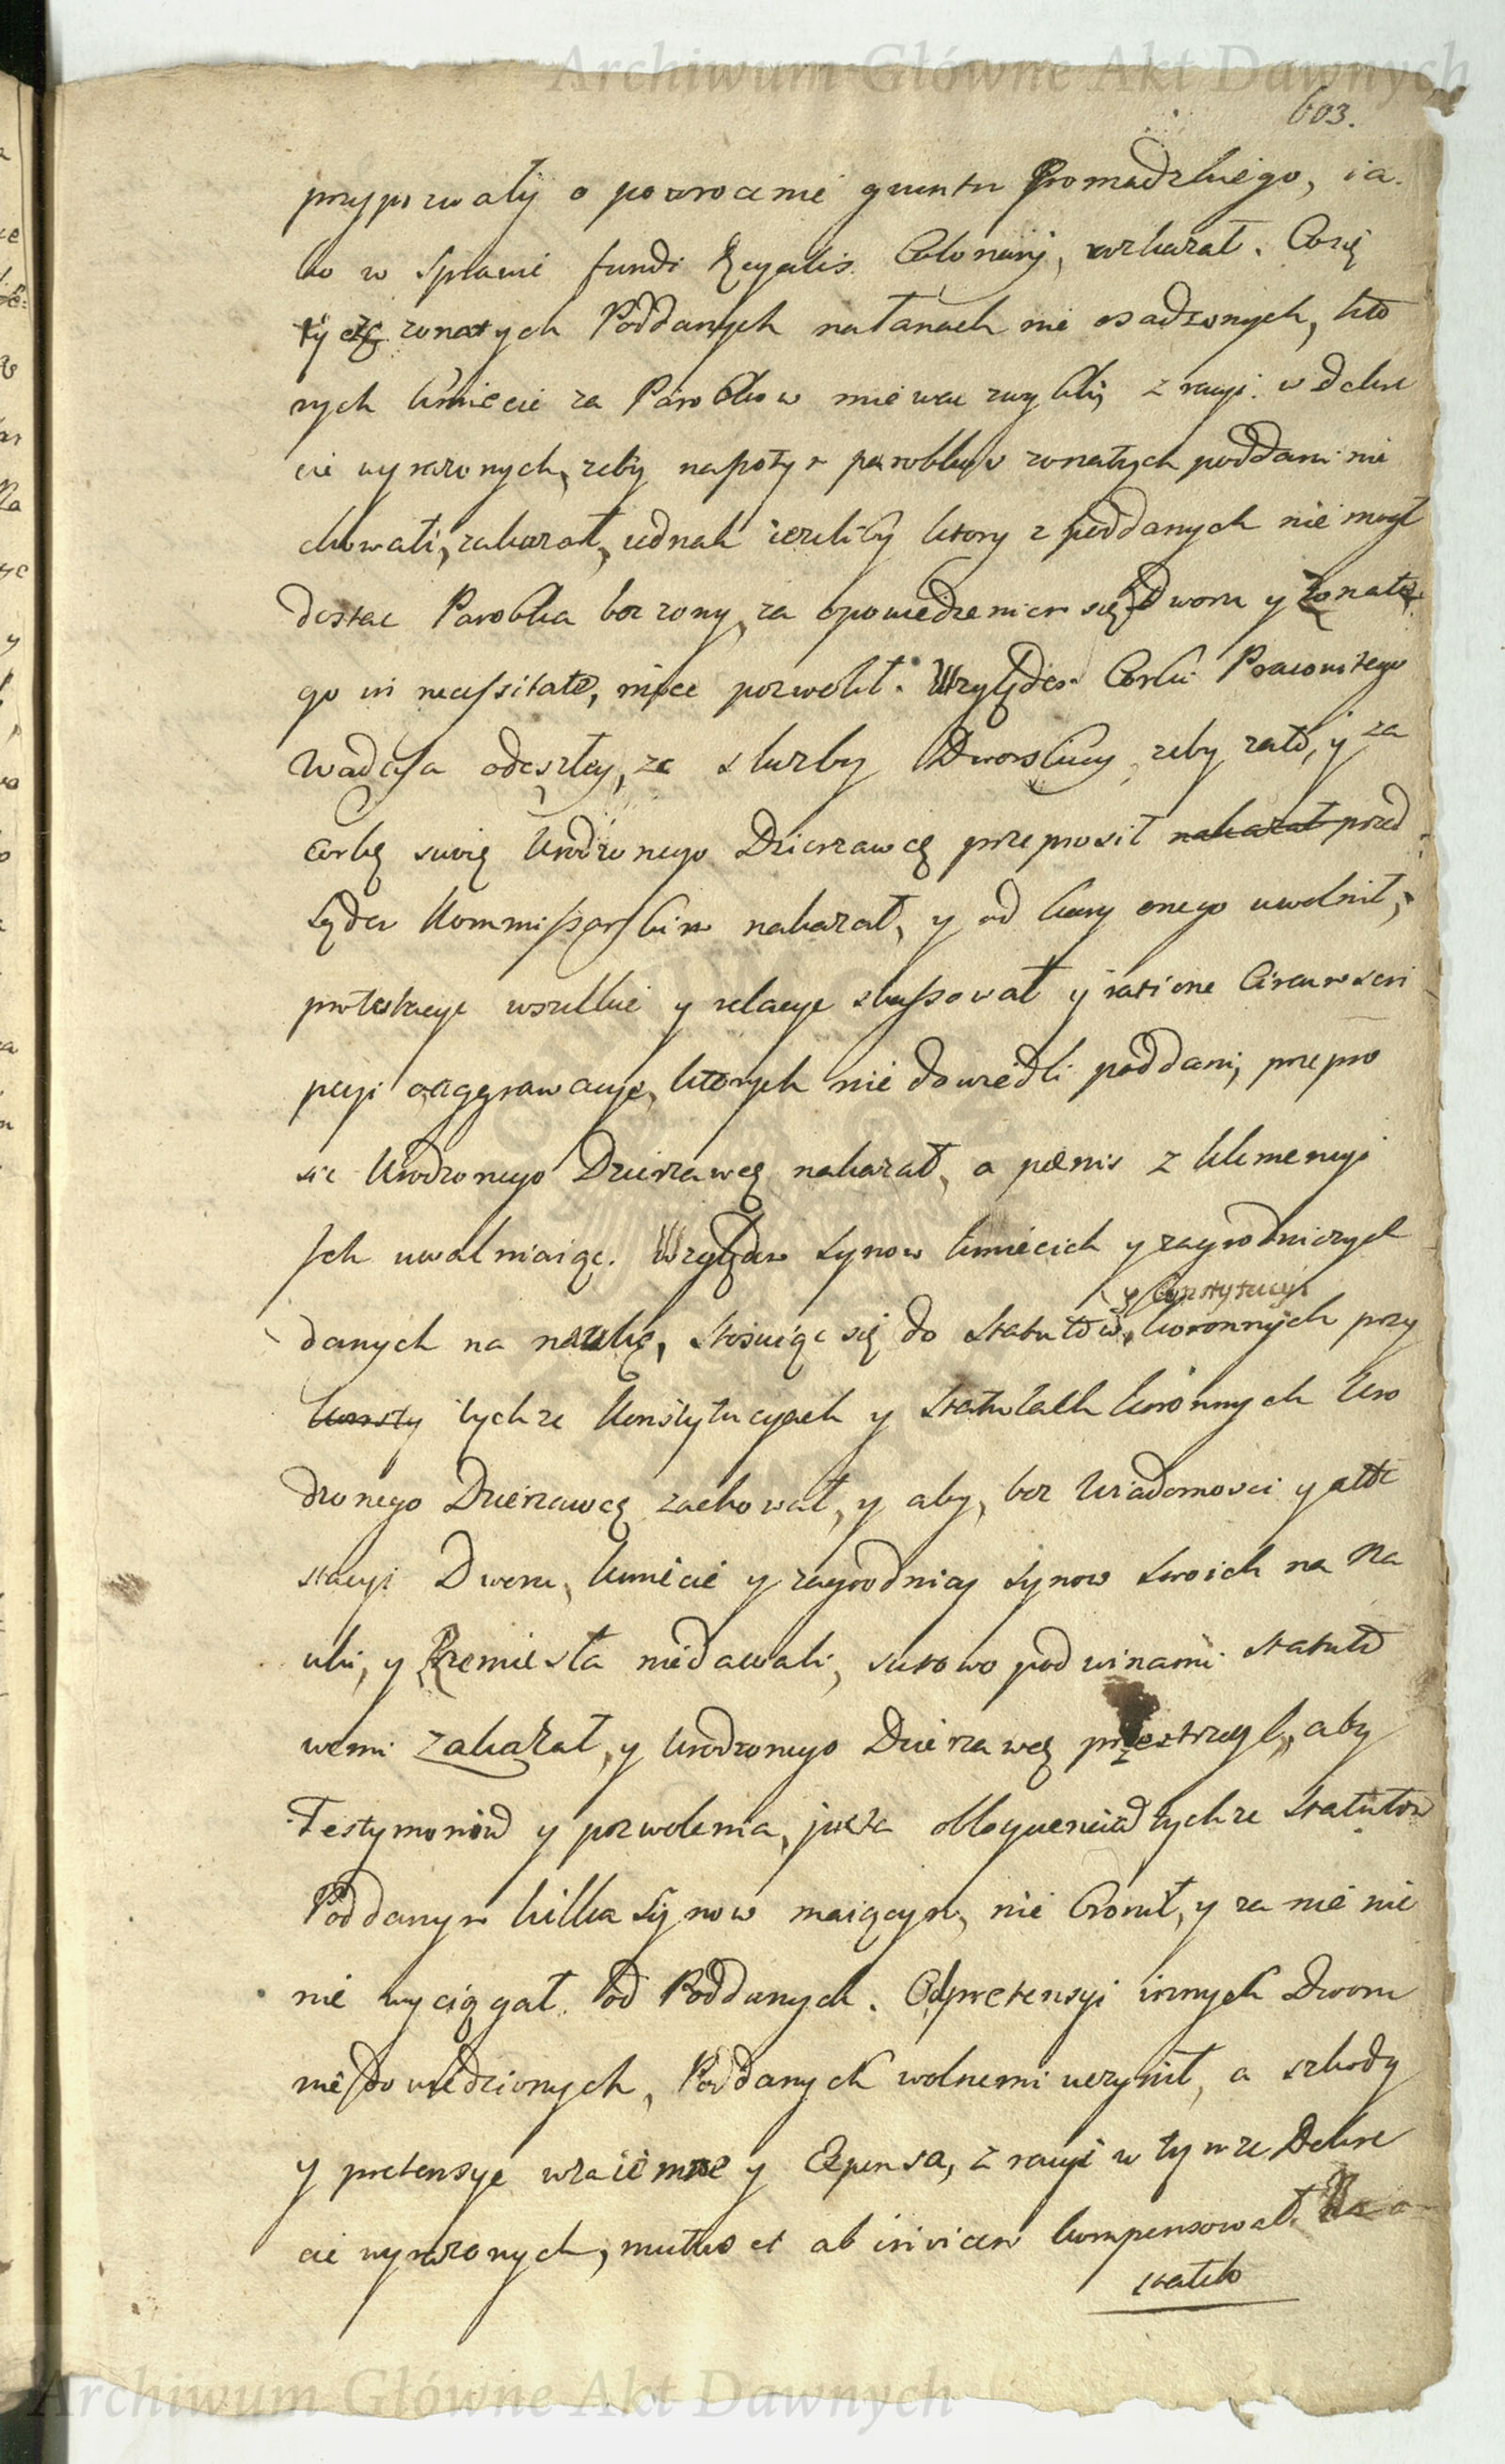 Archiwum Główne Akt Dawnych
603.
przypozwały o powrocenie gruntu Gromadzkiego, ia-
ko w Sprawie fundi Regalis Coloniarij, wskazał. Co się
tycze zonatych Poddanych nałanach nie osadzonych, kto
rych kmiecie za Parobkow miewac zwykli, z racyi w Dekre
cie wyrazonych, zeby napotym parobkow zonatych poddani nie
chowali, zakazał, iednak iezeliby ktory z poddanych nie mogł
dostac Parobka bez zony, za opowiedzeniem się Dworu y żonate
go in necessitate, miec pozwolił. Względem Corki Pracowitego
Wadasa odeszłey, ze słuzby Dworskiey, zeby zato, y za
corkę swoię Urodzonego Dzierzawcę przeprosił nakazał przed
Sądem Kommissarskim nakazał, y od kary onego uwolnił,
protestacye wszelkie y relacye skassował y ratione Circumscri
pcyi aggrawacye, ktorych nie dowiedli poddani, przepro
sic Urodzonego Dzierzawcę nakazał, a poenis z klemencyi
Ich uwalniaiąc. Względem Synow kmiecich y zagrodniczych
y Constytucyi
danych na naukę, stosuiąc się do Statutow koronnych przy
konsty tychze Konstytucyach y Statutach koronnych Uro
dzonego Dzierzawcę zachował, y aby, bez Wiadomosci y atte
stacyi Dworu, kmiecie y zagrodnicy synow swoich na Na
uki, y Rzemiesła niedawali, surowo pod winami statuto
wemi zakazał, y Urodzonego Dzierzawcę przestrzegł, aby
Testymoniow y pozwolenia, juxta obloquentiam tychze Statutow
Poddanym kilka Synow maiącym, nie bronił, y za nie nic
nie wyciągał od Poddanych. Od pretensyi innych Dworu
niedowiedzionych, Poddanych wolnemi uczynił, a szkody
y pretensye wzaiemne y Expensa, z racyi w tymze Dekre
cie wyrazonych, mutuo et ab invicem kompensował. Na o-
statek
Archiwum Główne Akt Dawnych